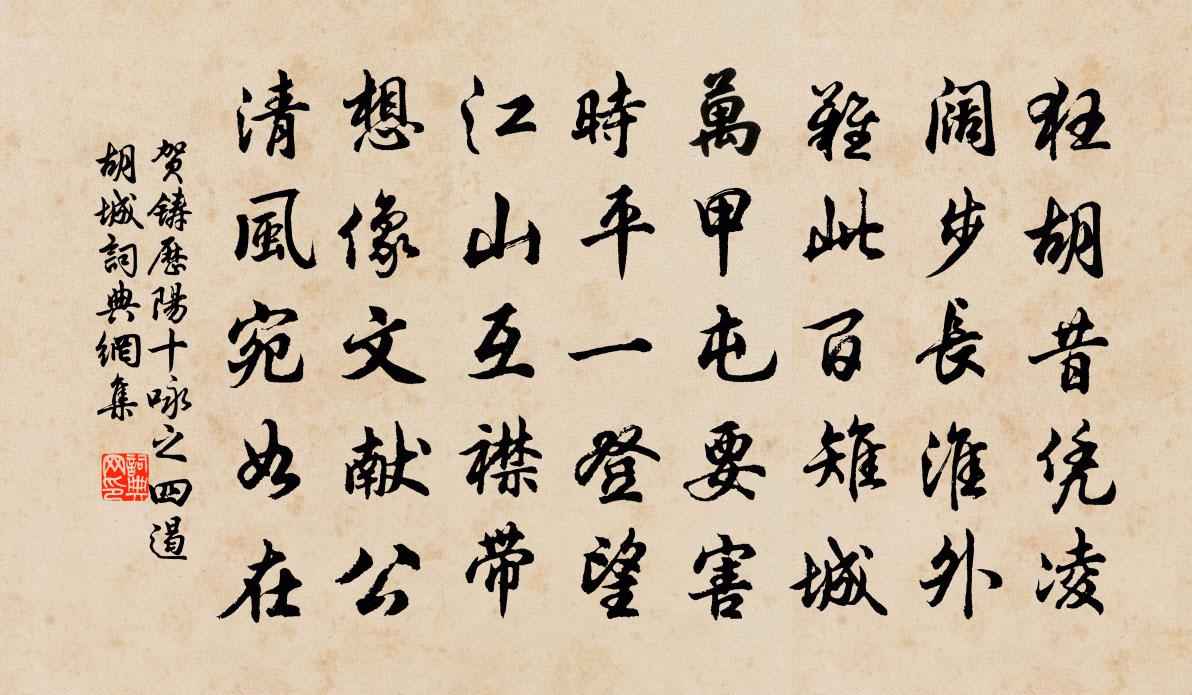 狂胡昔凭凌
阔步長淮外
難此百雉城
萬甲屯要害
時平一登望
江山互襟带
想像文献公
清風宛如在
贺鑄歷陽十咏之四遏
胡城詞典網集
詞典
网印